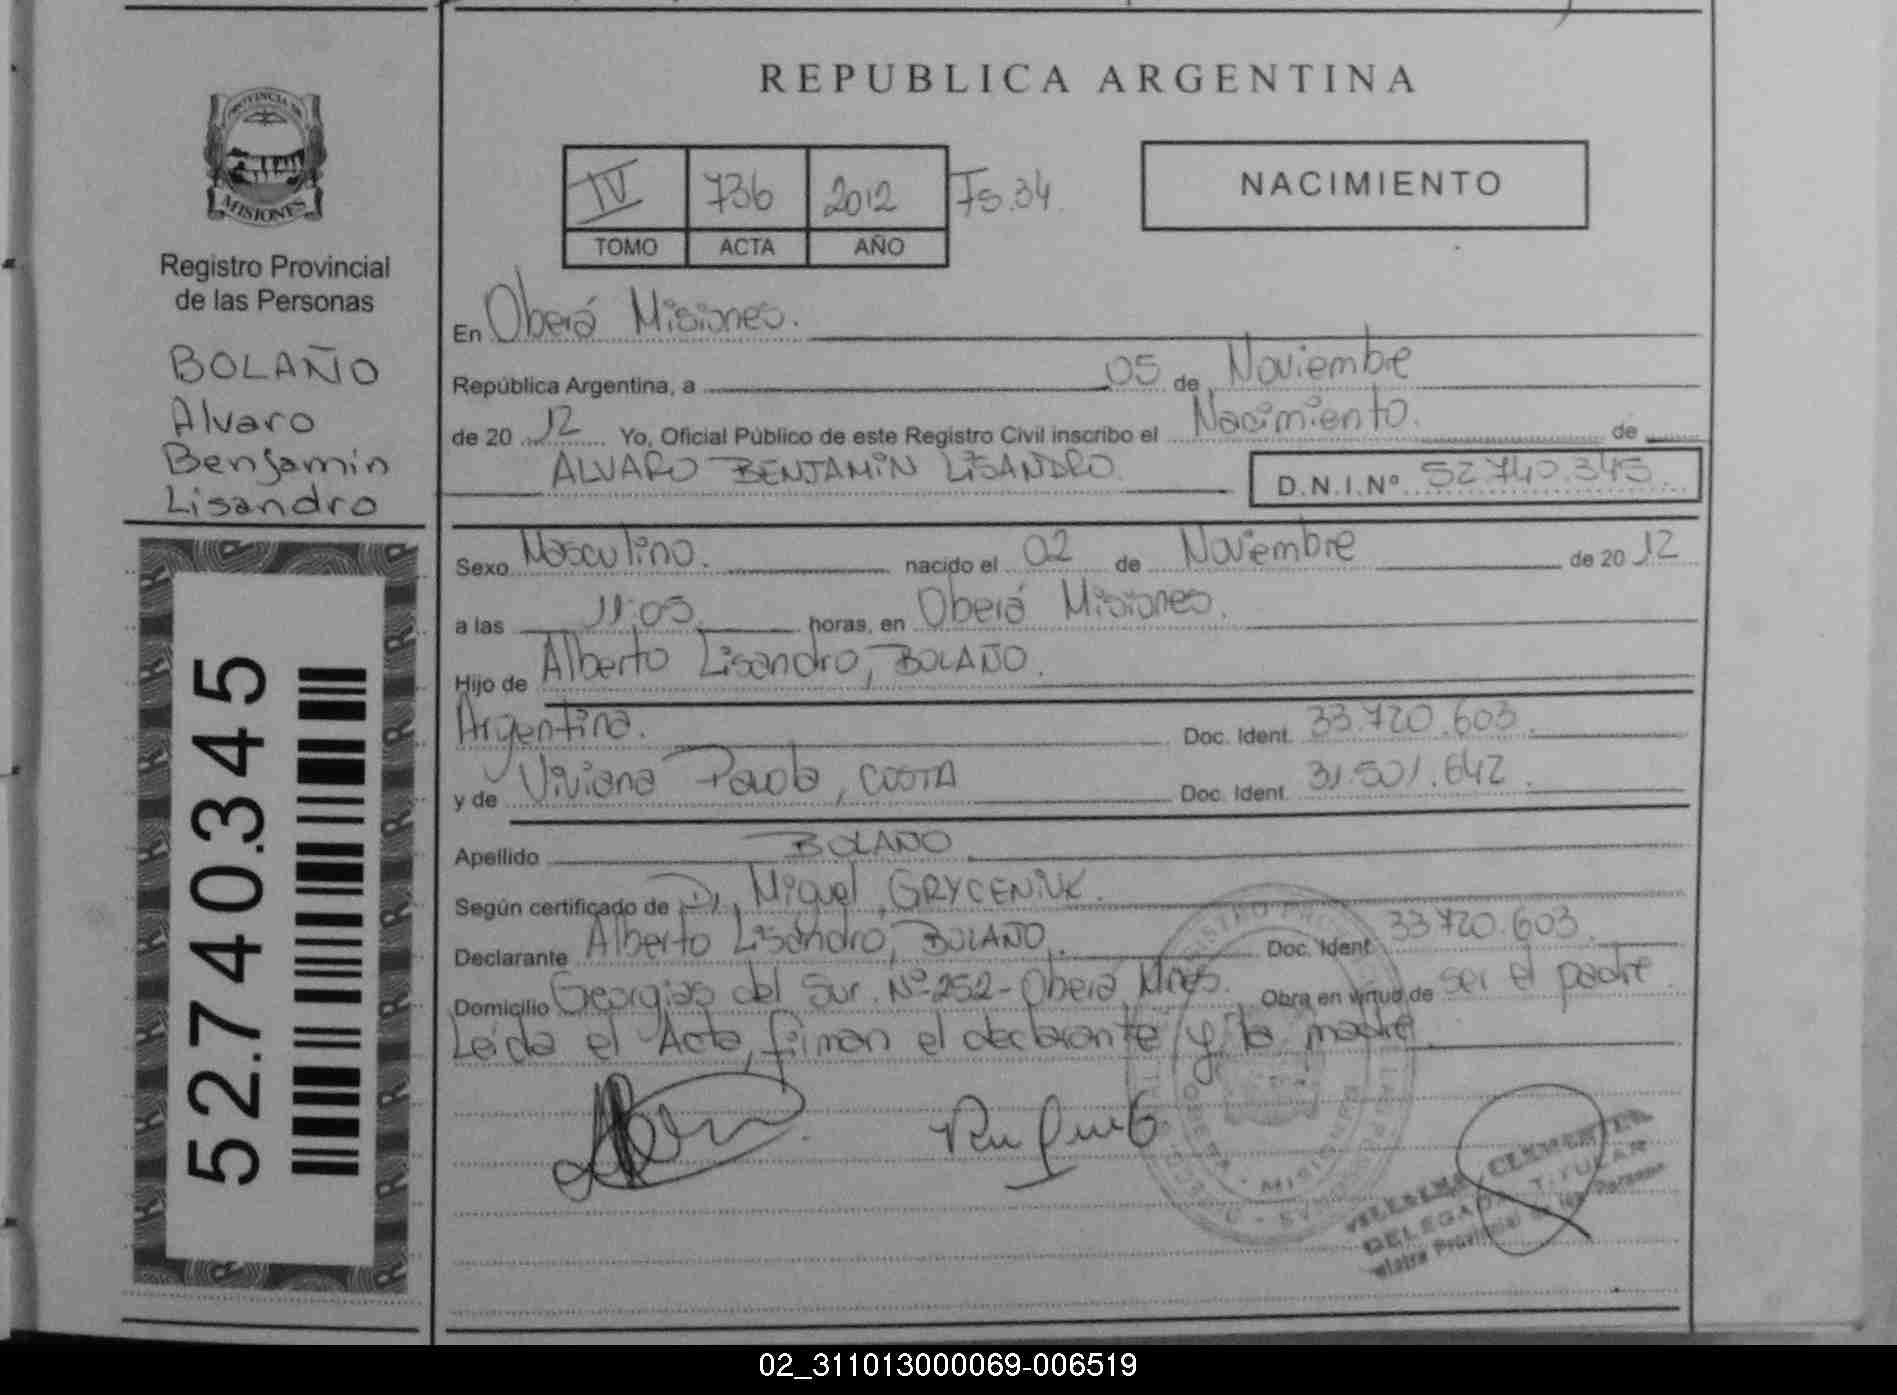 REPUBLICA ARGENTINA
PROVINCIA DE
MISIONES
Registro Provincial
de las Personas
BOLAÑO
Alvaro
Benjamin
Lisandro
52.740.345
IV 736 2012 Fs.34.
TOMO ACTA AÑO
NACIMIENTO
En Oberá Misiones.
República Argentina, a 05 de Noviembre
de 20 12 Yo, Oficial Público de este Registro Civil inscribo el Nacimiento. de
ALVARO BENJAMIN LISANDRO. D.N.I.Nº 52.740.345.
Sexo Masculino. nacido el 02 de Noviembre de 20 12
a las 11:05 horas, en Oberá Misiones.
Hijo de Alberto Lisandro, BOLAÑO.
Argentina. Doc. Ident. 33.720.603.
y de Viviana Paola, COSTA Doc. Ident. 31.501.642.
Apellido BOLAÑO
Según certificado de Dr. Miguel, GRYCENIUK.
Declarante Alberto Lisandro, BOLAÑO. Doc. Ident. 33720.603.
Domicilio Georgias del Sur. Nº 252 - Oberá Mnes. Obra en virtud de ser el padre.
Leída el Acta, firman el declarante y la madre.
OBERA - MISIONES
CLEMENTINA
DELEGADA TITULAR
Provincial de las Personas
02_311013000069-006519